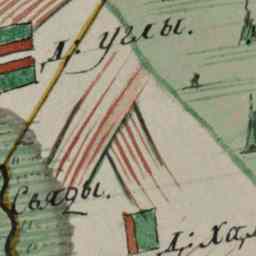 д: углы.
Сьяды.
д: хал